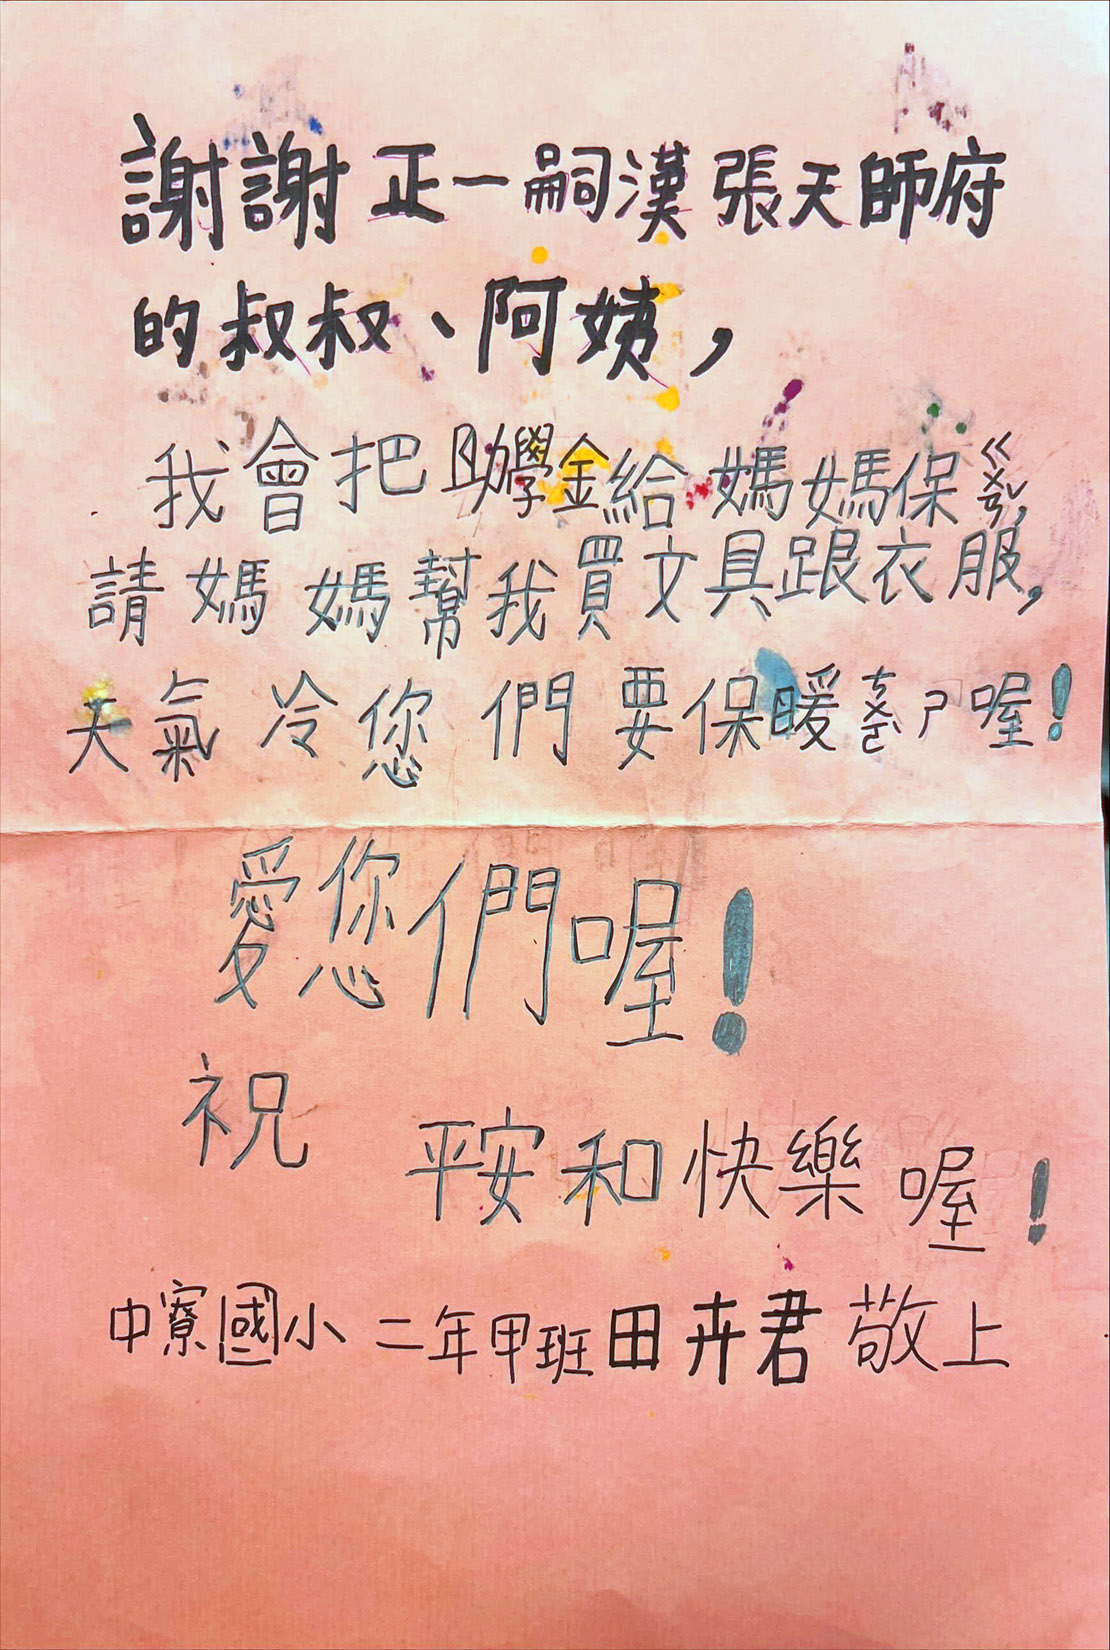 謝謝正一嗣漢張天師府
的叔叔、阿姨，
我會把助學金給媽媽保ㄍㄨㄢˇ，
請媽媽幫我買文具跟衣服，
天氣冷您們要保暖ㄎㄨㄛ ㄕ喔！
愛您們喔！
祝
平安和快樂喔！
中寮國小二年甲班田卉君敬上